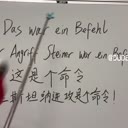 Das war ein Befehl
Angriff Steiner war ein Bef
这是个命令
斯坦纳进攻是个命令!